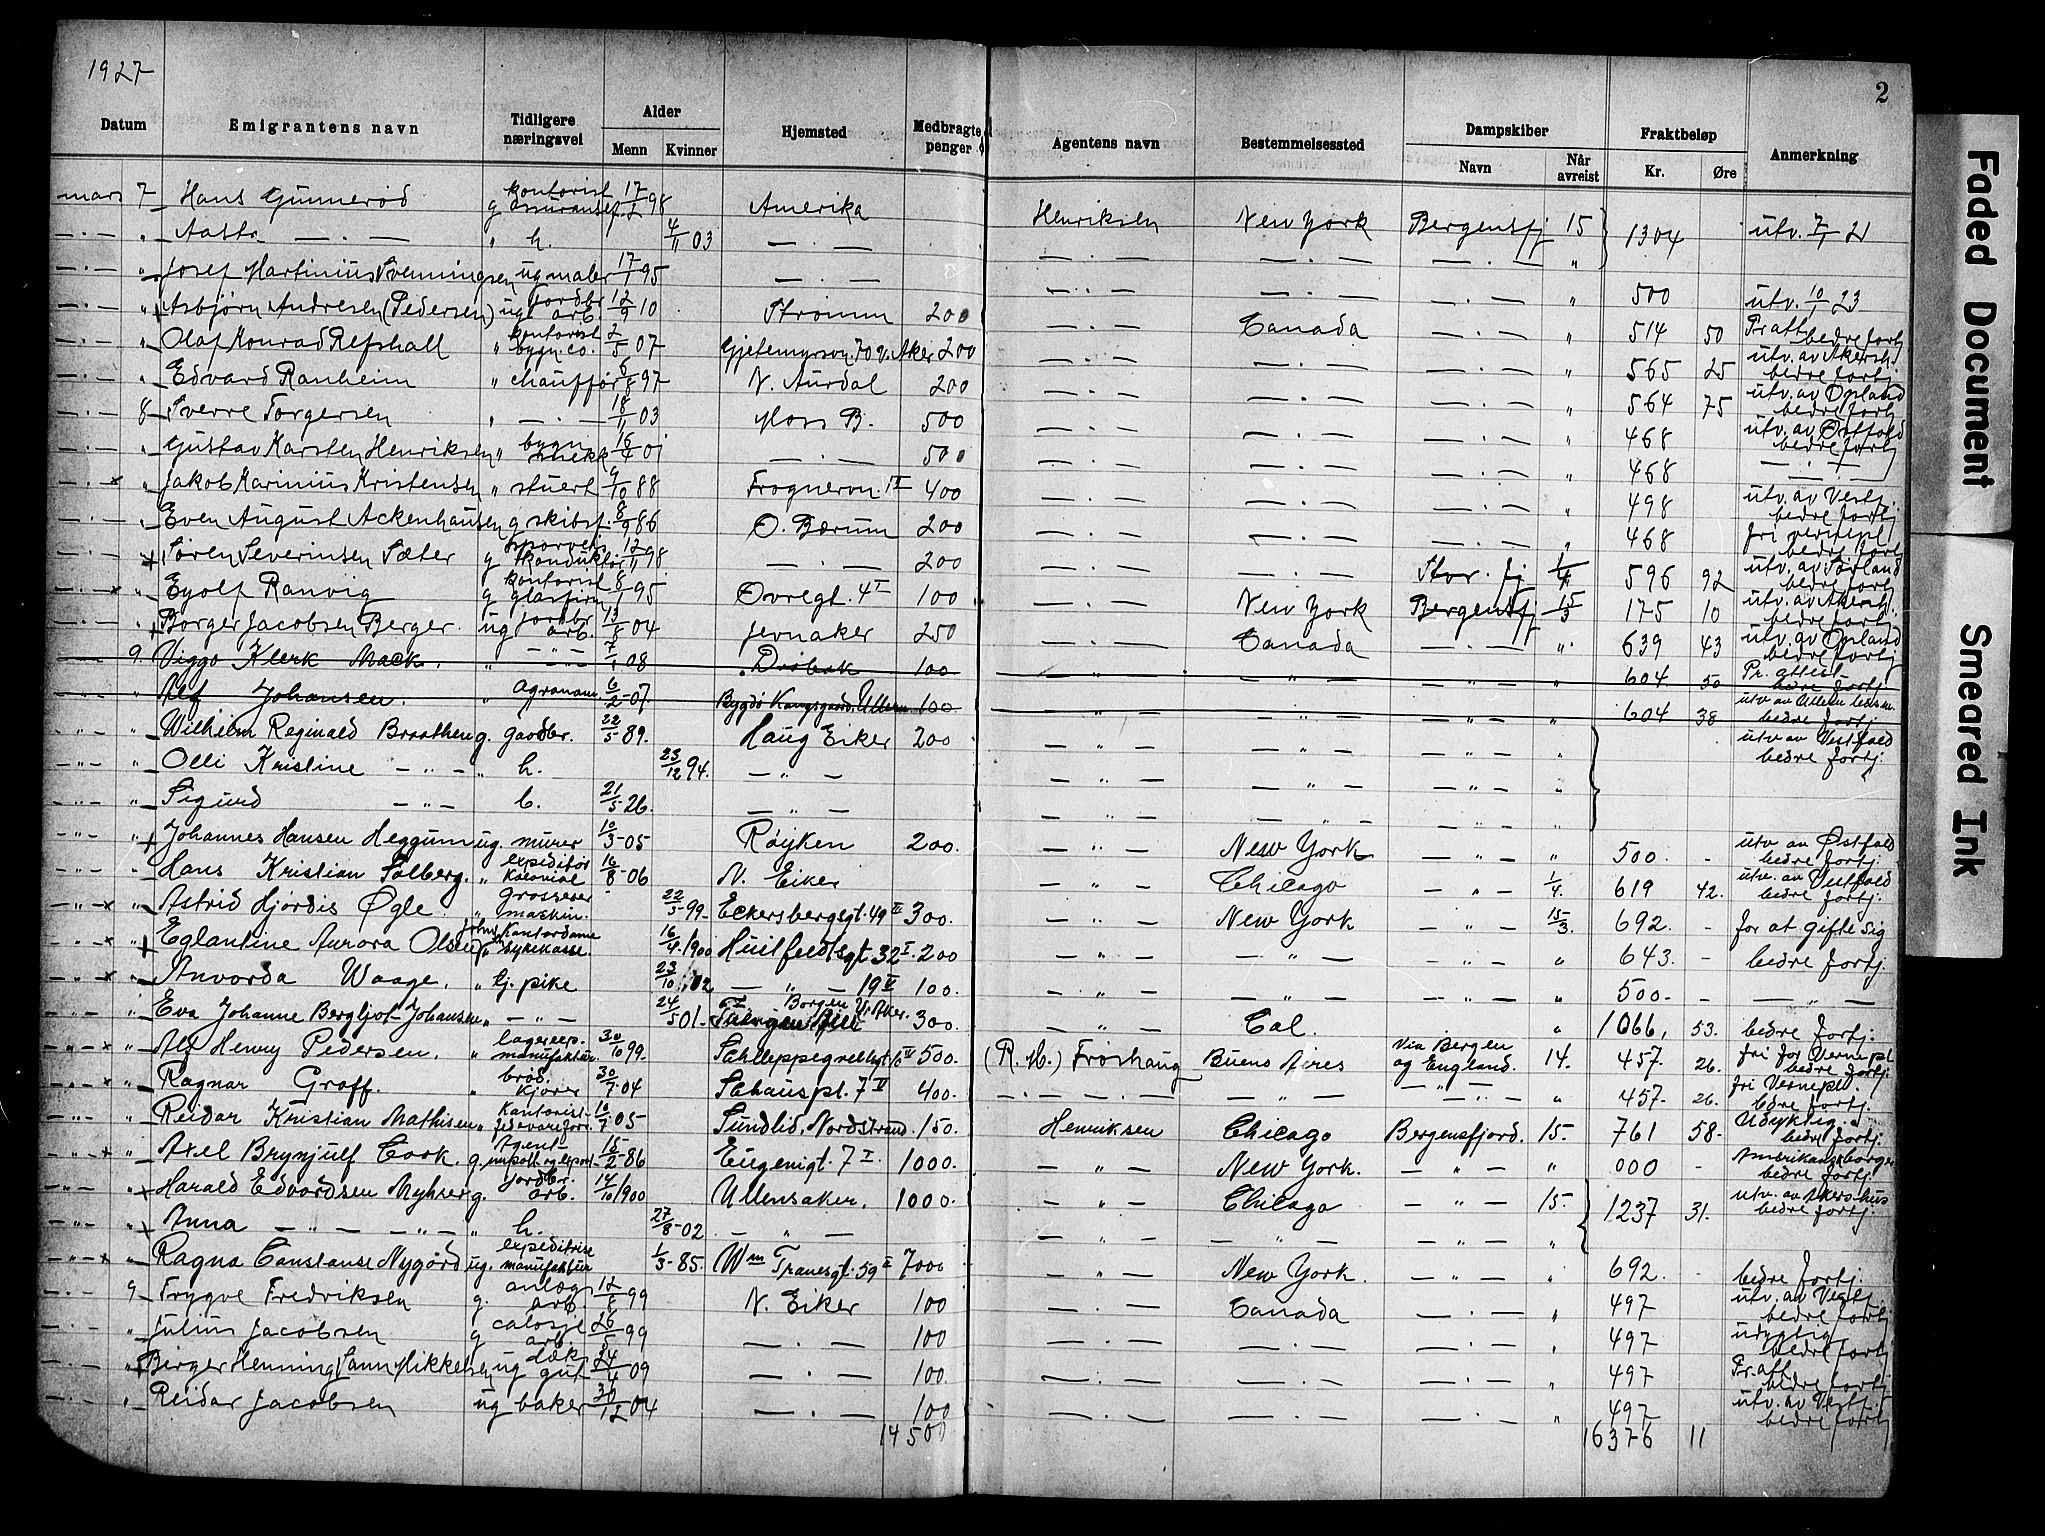 1927
2
Datum Emigrantens navn Tidligere næringsvei Alder Menn Kvinner Hjemsted Medbragte penger Agentens navn Bestemmelsessted Dampskiber Navn Når avreist Fraktbeløp Kr. Øre Anmerkning
mars 7 Hans Gunnerød g kontorist assuransef. 17/2 98 Amerika Henriksen New York Bergensfj 15 1304 utv. 7/1 21
— . — " Aasta — . — " h. 4/11 03 — . — — . — — . — — . — "
— . — " Josef Martinius Svenningsen ug maler 17/1 95 — . — — . — — . — — . — " 500 utv. 10/1 23
— . — " Asbjørn Andresen (Pedersen) ug jordbr arb. 12/9 10 Strømm 200 — . — Canada — . — " 514 50 Pr att bedre fortj
— . — " Olaf Konrad Refshall " kontorist bygn. co. 2/5 07 Gjetemyrsvn. 70 V. Aker 200 — . — — . — — . — " 565 25 utv. av Akersh. bedre fortj
— . — " Edvard Ranheim " chauffør 6/8 97 N. Aurdal 200 — . — — . — — . — " 564 75 utv. av Opland bedre fortj
— . — 8 Sverre Torgersen " — . — 18/11 03 Moss B. 500 — . — — . — — . — " 468 utv. av Østfold bedre fortj
— . — " Gustav Karsten Henriksen " bygn. snekk 16/4 01 — . — 500 — . — — . — — . — " 468 — . —
— . — x " Jakob Karinius Kristensen " stuert 9/10 88 Frognervn. 1 II 400 — . — — . — — . — " 498 utv. av Vestf. bedre fortj
— . — " Even August Ackenhausen g skibsf. 8/9 86 O. Bærum 200 — . — — . — — . — " 468 fri vernepl bedre fortj
— . — " Søren Severinsen Sæter g sporveis konduktør 12/11 98 — . — 200 — . — — . — Stav. fj 1/4 596 92 utv. av Sørland bedre fortj
— . — x " Eyolf Ranvig g kontorist glasfirm 8/1 95 Øvregt. 4 I 100 — . — New York Bergensfj 15/3 175 10 utv. av Akersh. bedre fortj
— . — " Borger Jacobsen Berger. ug jordbr arb. 13/8 04 Jevnaker 250 — . — Canada — . — " 639 43 utv. av Opland bedre fortj
— . — 9. Viggo Klerk Mack. " — " — 7/1 08 Drøbak 100 — " — — " — — " — " 604 50 Pr. attest bedre fortj.
— " — " Alf Johansen. " agronom. 6/2-07. Bygdø Kongsgaard, Ullern 100 — " — — " — — " — " 604 38 utv av Ullern lensm. bedre fortj.
— " — " Wilhelm Reginald Braathen g. gaardbr. 22/5 89. Haug Eiker 200 — " — — " — — " — " utv av Vestfold bedre fortj.
— " — " Olli Kristine — " — " h. 23/12 94. — " — — " — — " — — " — "
— " — " Sigurd — " — b. 21/5 26. — " — — " — — " — — " — "
— " — " Johannes Hansen Heggum ug. murer 10/3-05 Røyken 200. — " — New York — " — " 500. - utv av Østfold bedre fortj.
— " — " Hans Kristian Solberg. " expeditør kolonial 16/8-06 N. Eiker — " — Chicago — " — 1/4. 619 42. utv. av Vestfold bedre fortj.
— " — x " Astrid Hjørdis Øgle " grosserer maskin. 22/5 99- Eckersbergsgt. 49 II 300. — " — New York — " — 15/3. 692. - for at gifte sig
— " — x " Eglantine Aurora Olsen " kontordame sykekasse. 16/4.1900 Huitfeldtsgt 32 I. 200 — " — — " — — " — " 643. - bedre fortj.
— " — x " Anvorda Waage. " tj. pike 23/10 02 — " — 19 II 100. — " — — " — — " — " 500- - — " —
— " — " Eva Johanne Bergljot Johansen " — " — 24/5 01- Borgen V. Aker. 300. — " — Cal. " 1066. 53. bedre fortj.
— " — x " Alf Henry Pedersen. " lagerexp. manufaktur 30/10 99. Schleppegrellsgt 6 IV 500. (R. M.) Frøshaug Buenos Aires Via Bergen og England. 14. 457. 26. fri for Vernepl bedre fortj.
— " — x " Ragnar Groff. " brød. kjører 30/7-04 Schouspl. 7 II 400. — . — Buenos — " — — " — " 457. 26. fri Vernepl. bedre fortj.
— " — " Reidar Kristian Mathisen " kontorist fedevareforr. 10/7 05 Sundlid, Nordstrand. 150. Henriksen Chicago Bergensfjord. 15. 761 58- Udyktig. bedre fortj.
— " — x " Axel Brynjulf Cook. g. Agent import og export 15/2-86 Eugenigt. 7 I. 1000. — " — New York. — " — " 000 - Amerikansk borger bedre fortj.
— " — " Harald Edvardsen Myhrer g. jordbr. arb. 14/10 1900 Ullensaker. 1000. — " — Chicago — " — 15. 1237 31. utv. av Akershus bedre fortj.
— " — " Anna — " — " — " h. 27/8-02 — " — — " — — " — — " — "
— " — x " Ragna Constanse Nygård ug. expeditrise manufaktur 1/3-85. Wm Tranesgt. 59 II 7000 — " — New York. — " — " 692. - bedre fortj.
— . — 9 Trygve Fredriksen g. anlæg arb. 12/8 99 N. Eiker 100 — . — Canada — . — " 497 utv. av Vestf. bedre fortj
— . — " Julius Jacobsen g calosje arb. 26/5 99 — . — 100 — . — — . — — . — " 497 udygtig bedre fortj
— . — " Birger Henning Sann Mikkelsen ug dæk gut 24/4 09 — . — 100 — . — — . — — . — " 497 Pr. att. bedre fortj
— . — " Reidar Jacobsen ug baker 30/12 04 — . — 100 — . — — . — — . — " 497 utv. av Vestf. bedre fortj
14500 16376 11
Faded Document
Smeared Ink